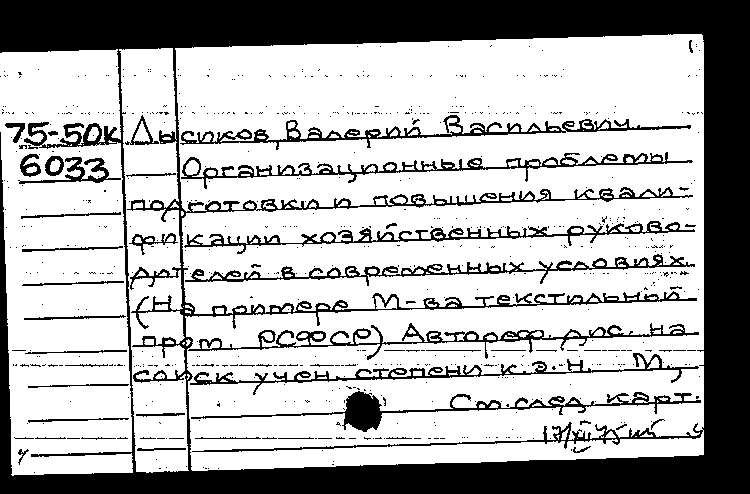 75-50к Лысиков, Валерий Васильевич.
6033 Организационные проблемы
подготовки и повышения квали-
фикации хозяйственных руково-
дителей в современных условиях.
(На примере М-ва текстильной
пром. РСФСР) Автореф. дис. на
соиск учен. степени к.э.н. М.,
См. след. карт.
17/XII 75